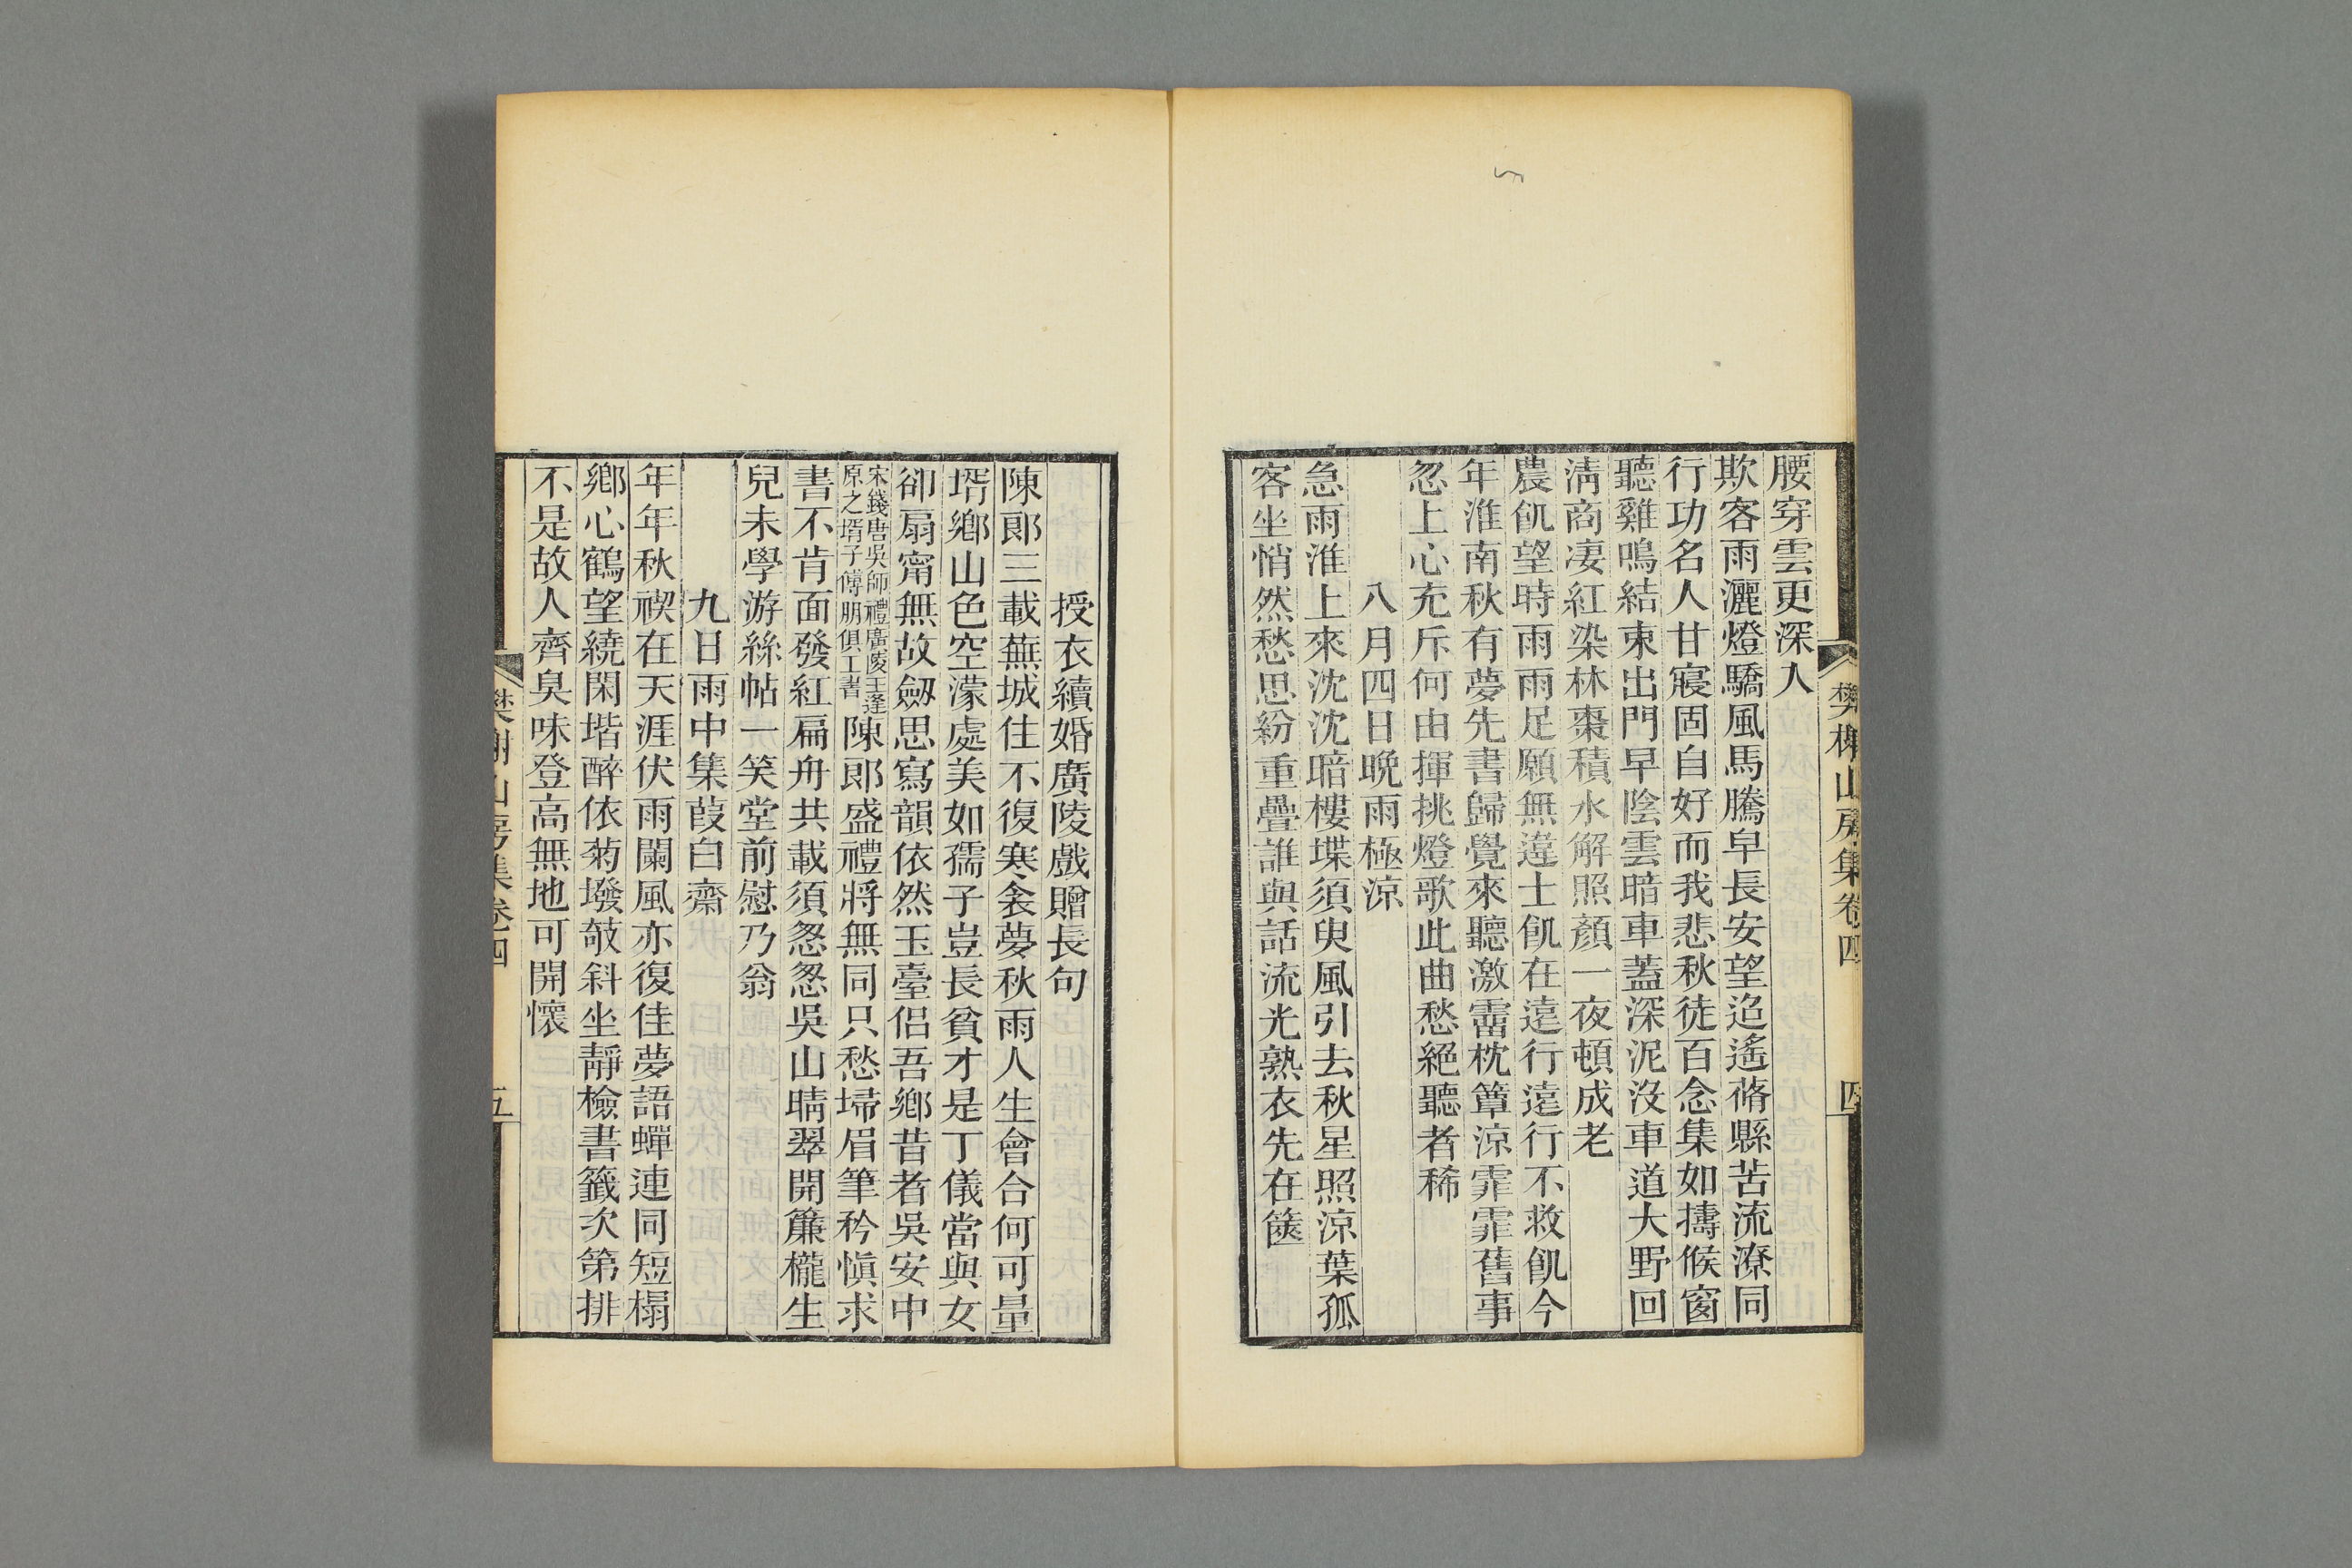 樊榭山房集卷四
四
腰穿雲更深入
欺客雨灑燈驕風馬騰皁長安望迢遙蓨縣苦流潦同
行功名人甘寢固自好而我悲秋徒百念集如擣候窗
聽雞鳴結束出門早陰雲暗車蓋深泥沒車道大野回
淸商凄紅染林棗積水解照顏一夜頓成老
農飢望時雨雨足願無違士飢在遠行遠行不救飢今
年淮南秋有夢先書歸覺來聽激霤枕簟涼霏霏舊事
忽上心充斥何由揮挑燈歌此曲愁絕聽者稀
八月四日晚雨極涼
急雨淮上來沈沈暗樓堞須臾風引去秋星照涼葉孤
客坐悄然愁思紛重疊誰與話流光熟衣先在篋
授衣續婚廣陵戲贈長句
陳郎三載蕪城住不復寒衾夢秋雨人生會合何可量
壻鄉山色空濛處美如孺子豈長貧才是丁儀當與女
卻扇甯無故劒思寫韻依然玉臺侶吾鄉昔者吳安中
宋錢唐吳師禮廣陵王逢
原之壻子傅朋俱工書
陳郎盛禮將無同只愁埽眉筆矜愼求
書不肯面發紅扁舟共載須怱怱吳山晴翠開簾櫳生
兒未學游絲帖一笑堂前慰乃翁
九日雨中集葭白齋
年年秋禊在天涯伏雨闌風亦復佳夢語蟬連同短榻
鄉心鶴望繞閑堦醉依菊墢攲斜坐靜檢書籤次第排
不是故人齊臭味登高無地可開懷
樊榭山房集卷四
五